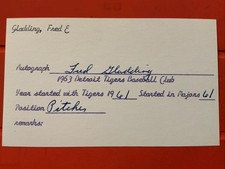 Gladding, Fred E
Autograph Fred Gladding
1963 Detroit Tigers Baseball Club
Year started with Tigers 1961 Started in Majors 61
Position Pitcher
Remarks: